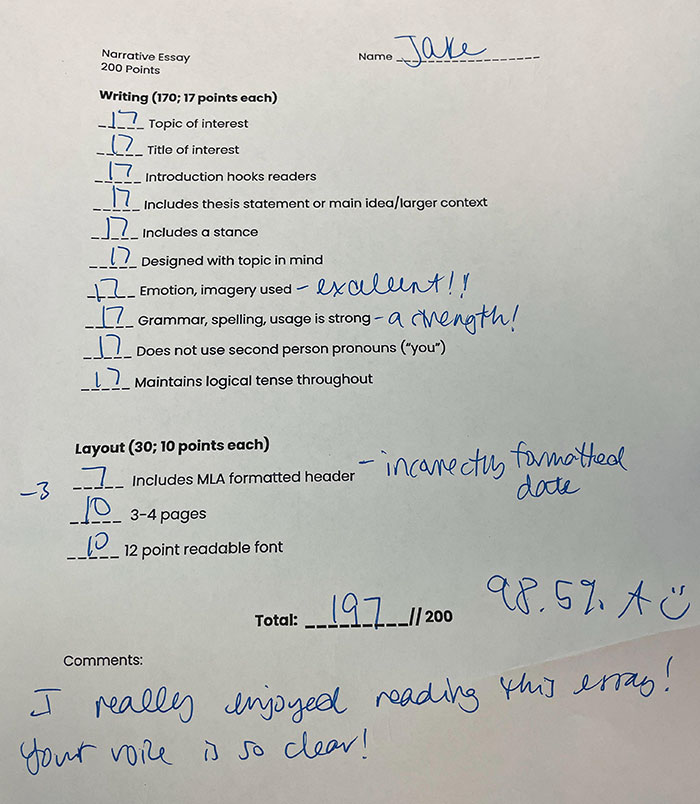 Narrative Essay
200 Points
Name Jake
Writing (170; 17 points each)
17 Topic of interest
17 Title of interest
17 Introduction hooks readers
17 Includes thesis statement or main idea/larger context
17 Includes a stance
17 Designed with topic in mind
17 Emotion, imagery used - excellent!!
17 Grammar, spelling, usage is strong - a strength!
17 Does not use second person pronouns (“you”)
17 Maintains logical tense throughout
Layout (30; 10 points each)
-3 7 Includes MLA formatted header - incorrectly formatted
date
10 3-4 pages
10 12 point readable font
Total: 197 // 200 98.5% A
Comments:
I really enjoyed reading this essay!
Your voice is so clear!